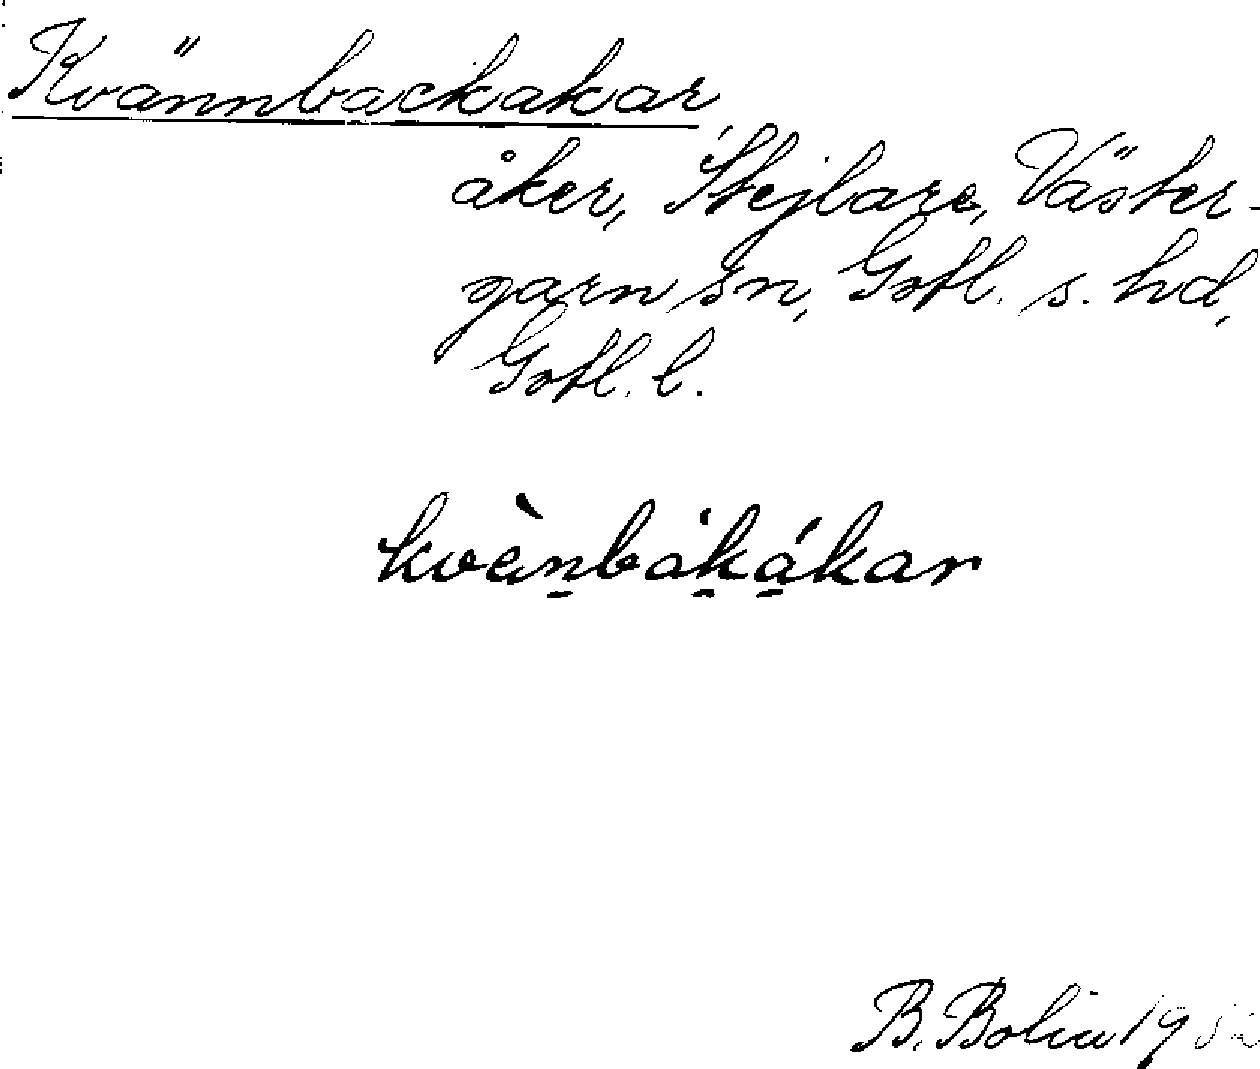 Kvännbackakar
åker, Stejlare, Väster-
garn sn, Gotl. s. hd,
Gotl. l.
kvànbákákar
B. Bolin 19